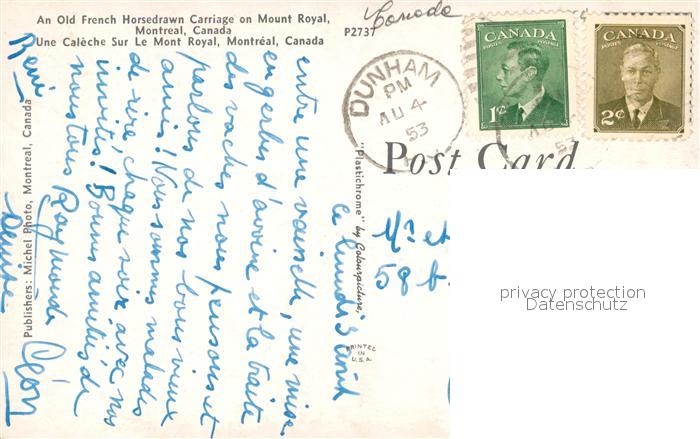 An Old French Horsedrawn Carriage on Mount Royal,
Montreal, Canada
Une Calèche Sur Le Mont Royal, Montréal, Canada
P2737
Canada
DUNHAM
PM
AU 4
53
CANADA
POSTES POSTAGE
1¢
CANADA
POSTES POSTAGE
2¢
Post Card
Publishers: Michel Photo, Montreal, Canada
"Plastichrome" by Colourpicture,
PRINTED
IN
U.S.A.
ce lundi 3 août
entre une vaisselle, une mise
en gerbes d'avoine et la traite
des vaches nous pensons et
parlons de nos bons vieux
amis! Nous sommes malades
de rire, chaque soir, avec nos
invités! Bonnes amitiés de
nous tous Raymonde Léon
René Denise
Mr et
58 b.
privacy protection
Datenschutz